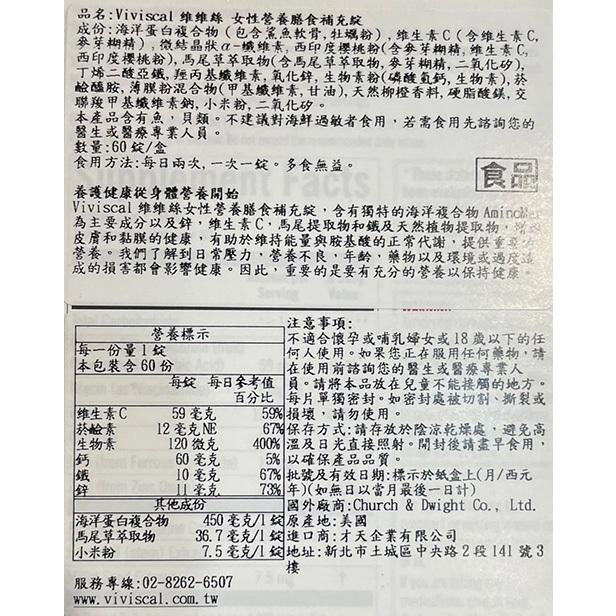 品名:Viviscal 維維絲 女性營養膳食補充錠
成份:海洋蛋白複合物 (包含鯊魚軟骨,牡蠣粉), 維生素C (含維生素C,
麥芽糊精), 微結晶狀α-纖維素, 西印度櫻桃粉(含麥芽糊精, 維生素C,
西印度櫻桃粉),馬尾草萃取物(含馬尾草萃取物,麥芽糊精,二氧化矽),
丁烯二酸亞鐵,羥丙基纖維素,氧化鋅,生物素粉(磷酸氫鈣,生物素),菸
鹼醯胺,薄膜粉混合物(甲基纖維素,甘油),天然柳橙香料,硬脂酸鎂,交
聯羧甲基纖維素鈉,小米粉,二氧化矽。
本產品含有魚,貝類。不建議對海鮮過敏者食用,若需食用先諮詢您的
醫生或醫療專業人員。
數量:60錠/盒
食用方法:每日兩次,一次一錠。多食無益。
食品
養護健康從身體營養開始
Viviscal維維絲女性營養膳食補充錠,含有獨特的海洋複合物Amino
為主要成分以及鋅,維生素C,馬尾提取物和鐵及天然植物提取物,
皮膚和黏膜的健康,有助於維持能量與胺基酸的正常代謝,提供重要
營養。我們了解到日常壓力,營養不良,年齡,藥物以及環境或過度造
成的損害都會影響健康。因此,重要的是要有充分的營養以保持健康。
營養標示
每一份量1錠
本包裝含60份
每錠 每日參考值
百分比
維生素C 59毫克 59%
菸鹼素 12毫克NE 67%
生物素 120微克 400%
鈣 60毫克 5%
鐵 10毫克 67%
鋅 11毫克 73%
其他成份
海洋蛋白複合物 450毫克/1錠
馬尾草萃取物 36.7毫克/1錠
小米粉 7.5毫克/1錠
服務專線:02-8262-6507
www.viviscal.com.tw
注意事項:
不適合懷孕或哺乳婦女或18歲以下的任
何人使用。如果您正在服用任何藥物,請
在使用前諮詢您的醫生或醫療專業人
員。請將本品放在兒童不能接觸的地方。
每片單獨密封。如密封處被切割、撕裂或
損壞,請勿使用。
保存方式:請存放於陰涼乾燥處,避免高
溫及日光直接照射。開封後請盡早食用,
以確保產品品質。
批號及有效日期:標示於紙盒上(月/西元
年)(如無日以當月最後一日計)
國外廠商:Church & Dwight Co., Ltd.
原產地:美國
進口商:才天企業有限公司
地址:新北市土城區中央路2段141號3
樓